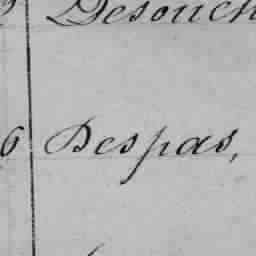 Desouch
6 Despas,